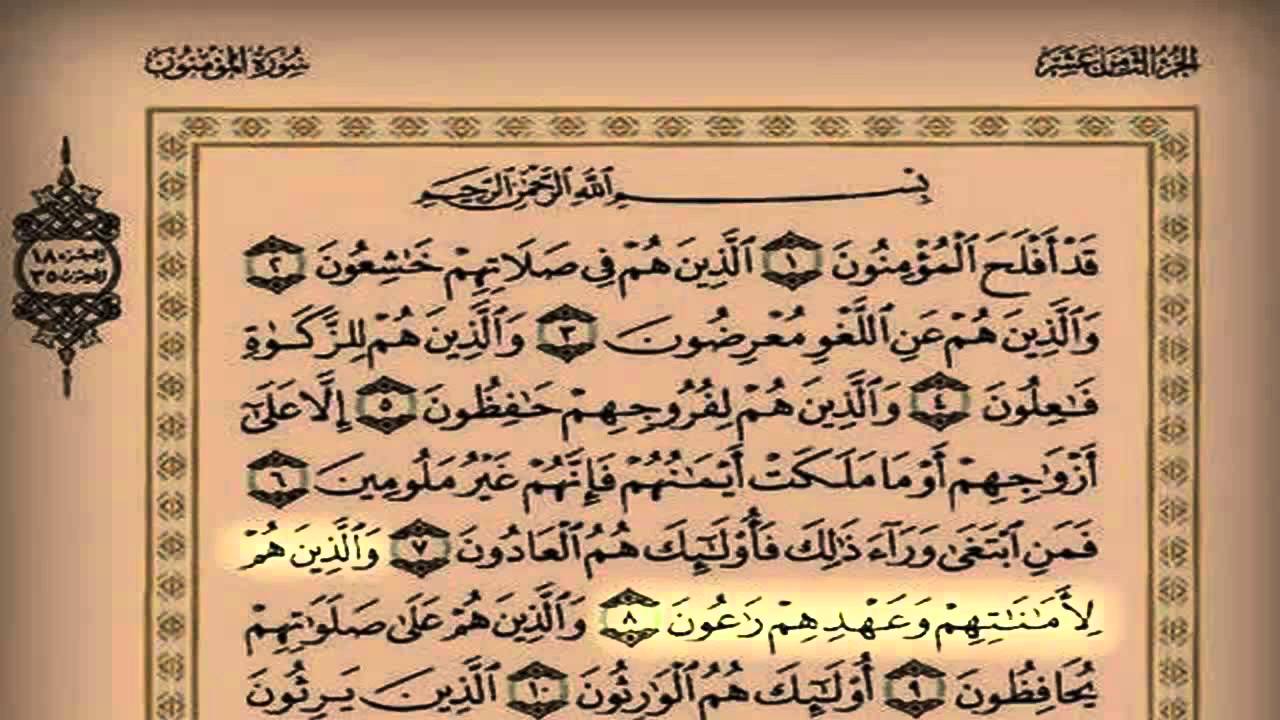 الجزء الثامن عشر
سورة المؤمنون
بِسْمِ اللَّهِ الرَّحْمَٰنِ الرَّحِيمِ
قَدْ أَفْلَحَ الْمُؤْمِنُونَ ١ الَّذِينَ هُمْ فِي صَلَاتِهِمْ خَاشِعُونَ ٢
وَالَّذِينَ هُمْ عَنِ اللَّغْوِ مُعْرِضُونَ ٣ وَالَّذِينَ هُمْ لِلزَّكَوٰةِ
فَاعِلُونَ ٤ وَالَّذِينَ هُمْ لِفُرُوجِهِمْ حَافِظُونَ ٥ إِلَّا عَلَىٰٓ
أَزْوَاجِهِمْ أَوْ مَا مَلَكَتْ أَيْمَانُهُمْ فَإِنَّهُمْ غَيْرُ مَلُومِينَ ٦
فَمَنِ ابْتَغَىٰ وَرَآءَ ذَٰلِكَ فَأُولَٰٓئِكَ هُمُ الْعَادُونَ ٧ وَالَّذِينَ هُمْ
لِأَمَانَاتِهِمْ وَعَهْدِهِمْ رَاعُونَ ٨ وَالَّذِينَ هُمْ عَلَىٰ صَلَوَاتِهِمْ
يُحَافِظُونَ ٩ أُولَٰٓئِكَ هُمُ الْوَارِثُونَ ١٠ الَّذِينَ يَرِثُونَ
الجزء ١٨
الحزب ٣٥